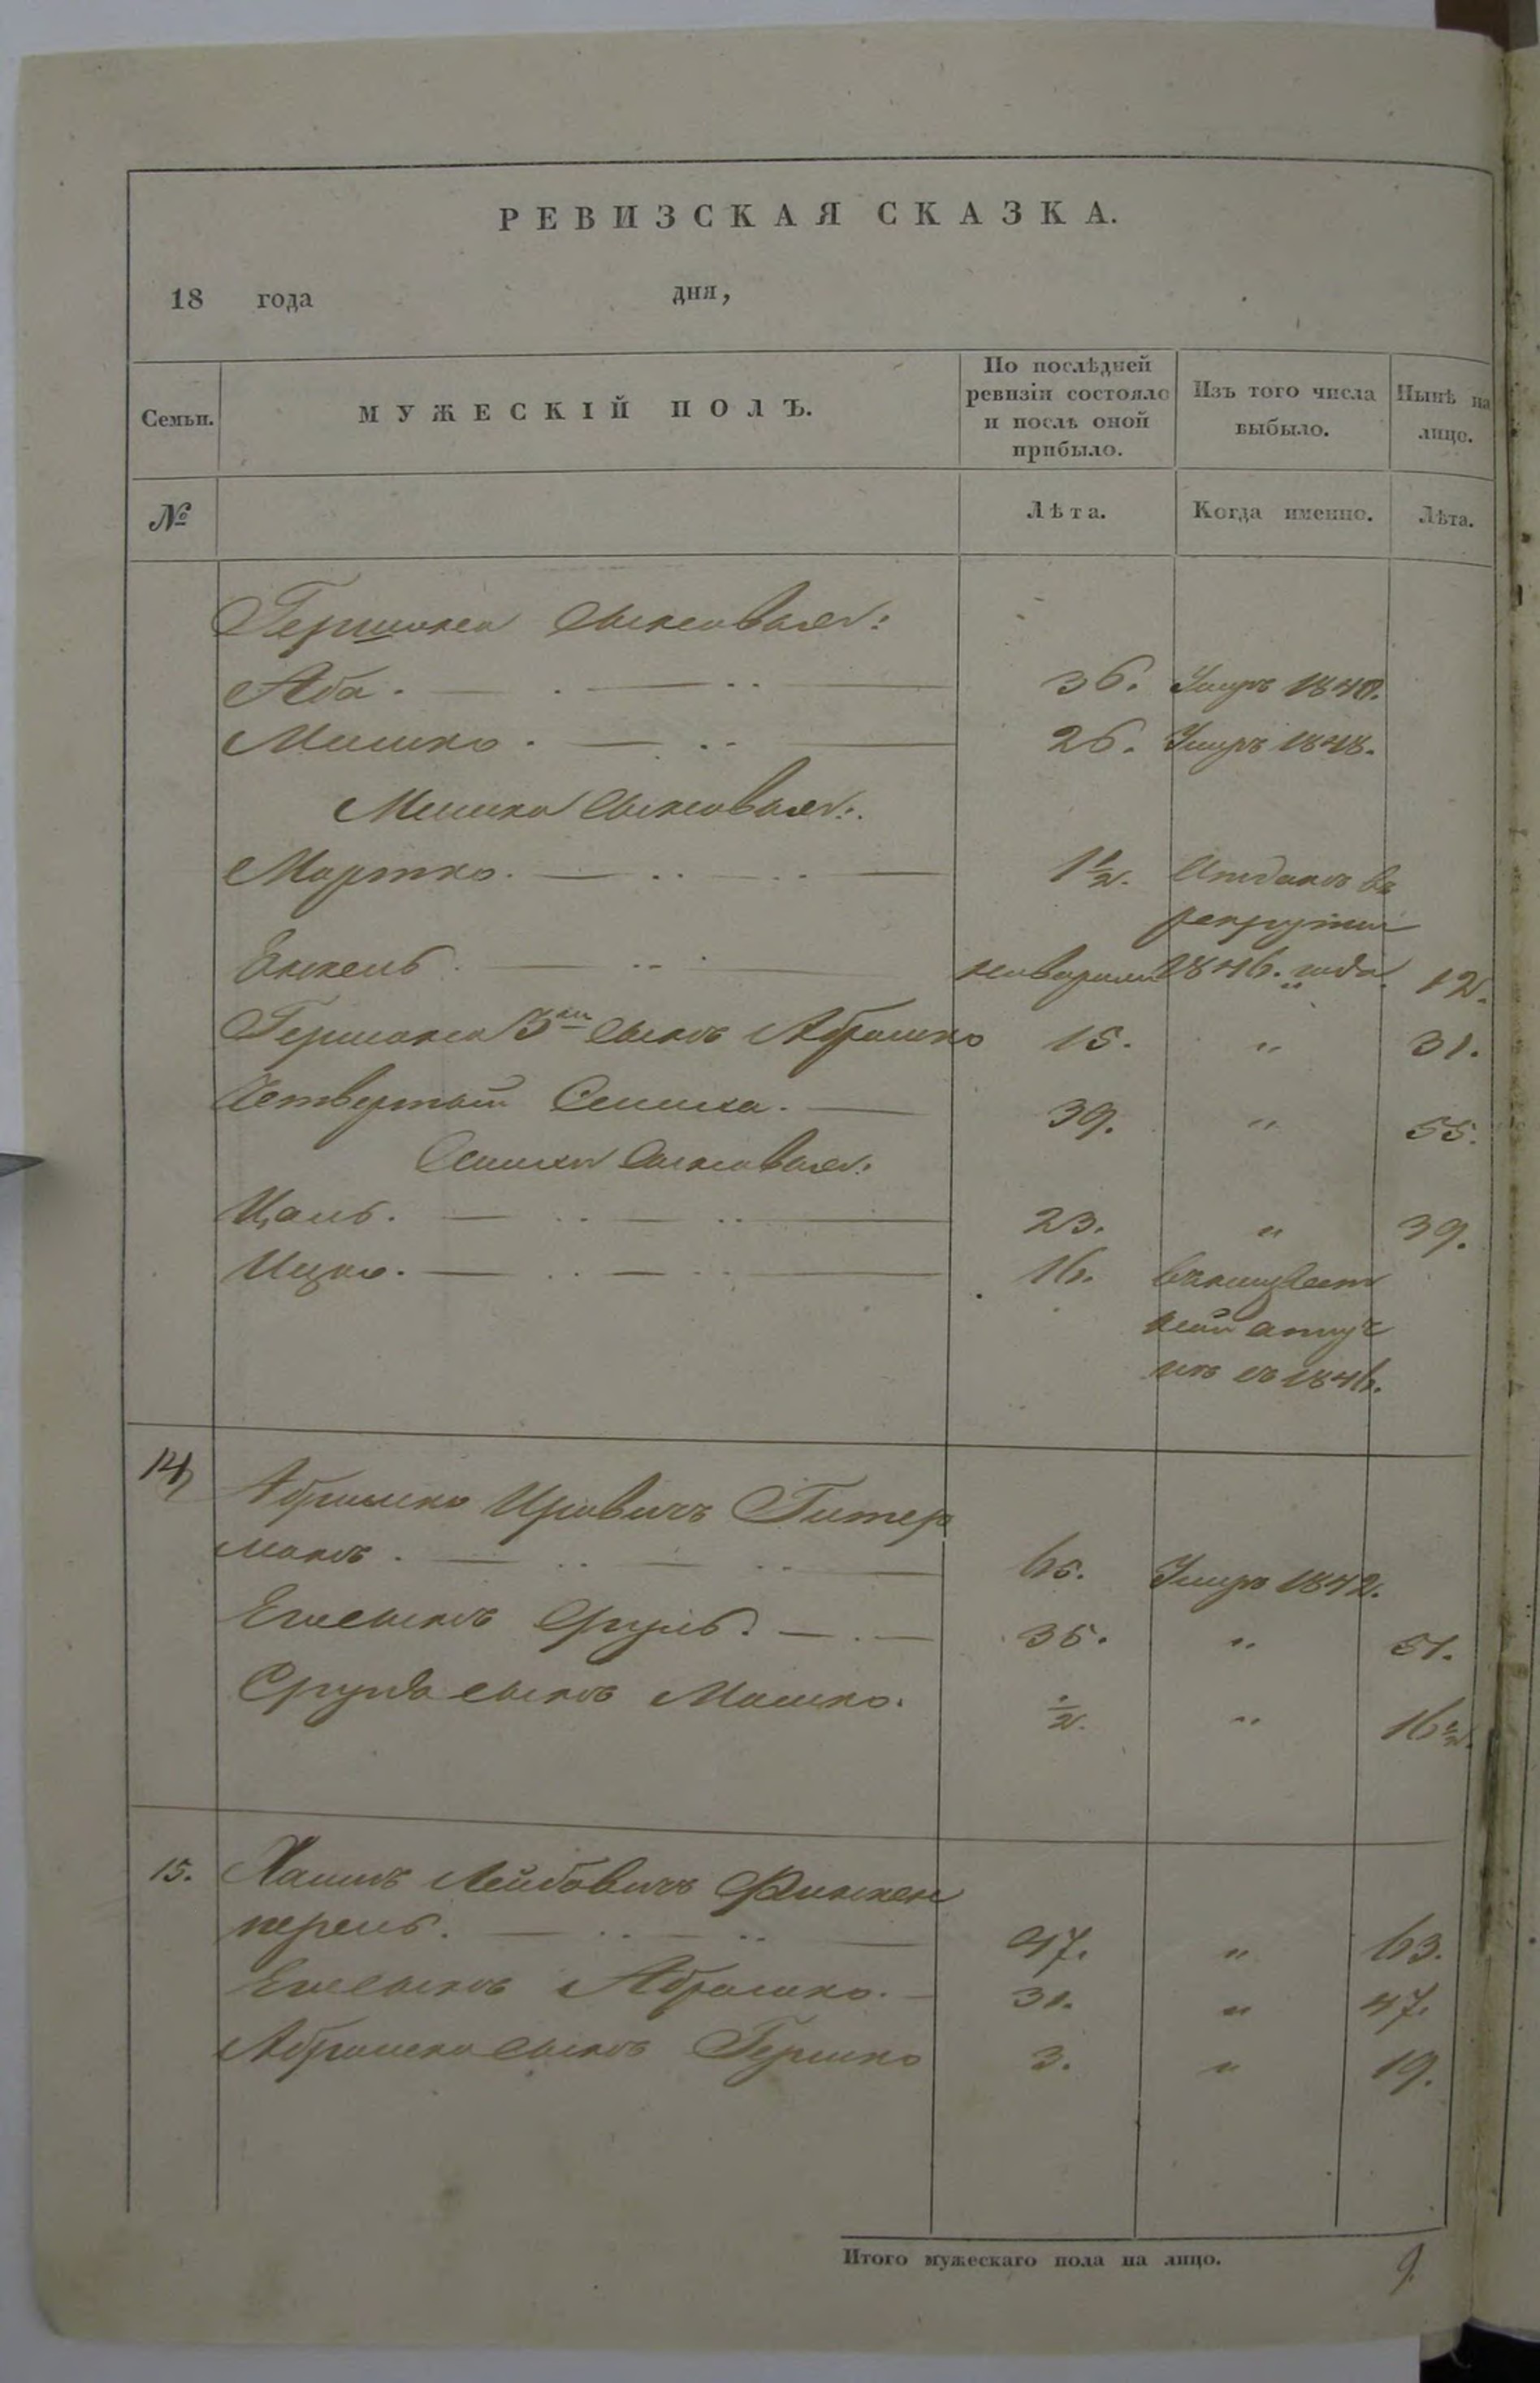 РЕВИЗСКАЯ СКАЗКА.
18 года дня,
Семьи. МУЖЕСКІЙ ПОЛЪ. По послѣдней ревизіи состояло и послѣ оной прибыло. Изъ того числа выбыло. Нынѣ на лицо.
№ Лѣта. Когда именно. Лѣта.
Гершка сыновья:
Аба. 36. Умръ 1840.
Мошко. 26. Умръ 1848.
Мошка сыновья:
Мортко. 1½. Отданъ въ
рекруты
Янкель. новорожд 1846. года. 12.
Гершка 3й сынъ Абрамко 15. " 31.
Четвертый Симха. 39. " 55.
Симхи сыновья:
Цаль. 23. " 39.
Ицко. 16.
въ 1846.
14 Абрамко Ицковичъ Гитер
манъ. 65. Умръ 1842.
Его сынъ Сруль. 35. " 51.
Сруля сынъ Мошко. ½. " 16½.
15. Хаимъ Лейбовичъ Финкен
перель. 47. " 63.
Его сынъ Абрамко. 31. " 47.
Абрамка сынъ Гершко 3. " 19.
Итого мужескаго пола на лицо. 9.